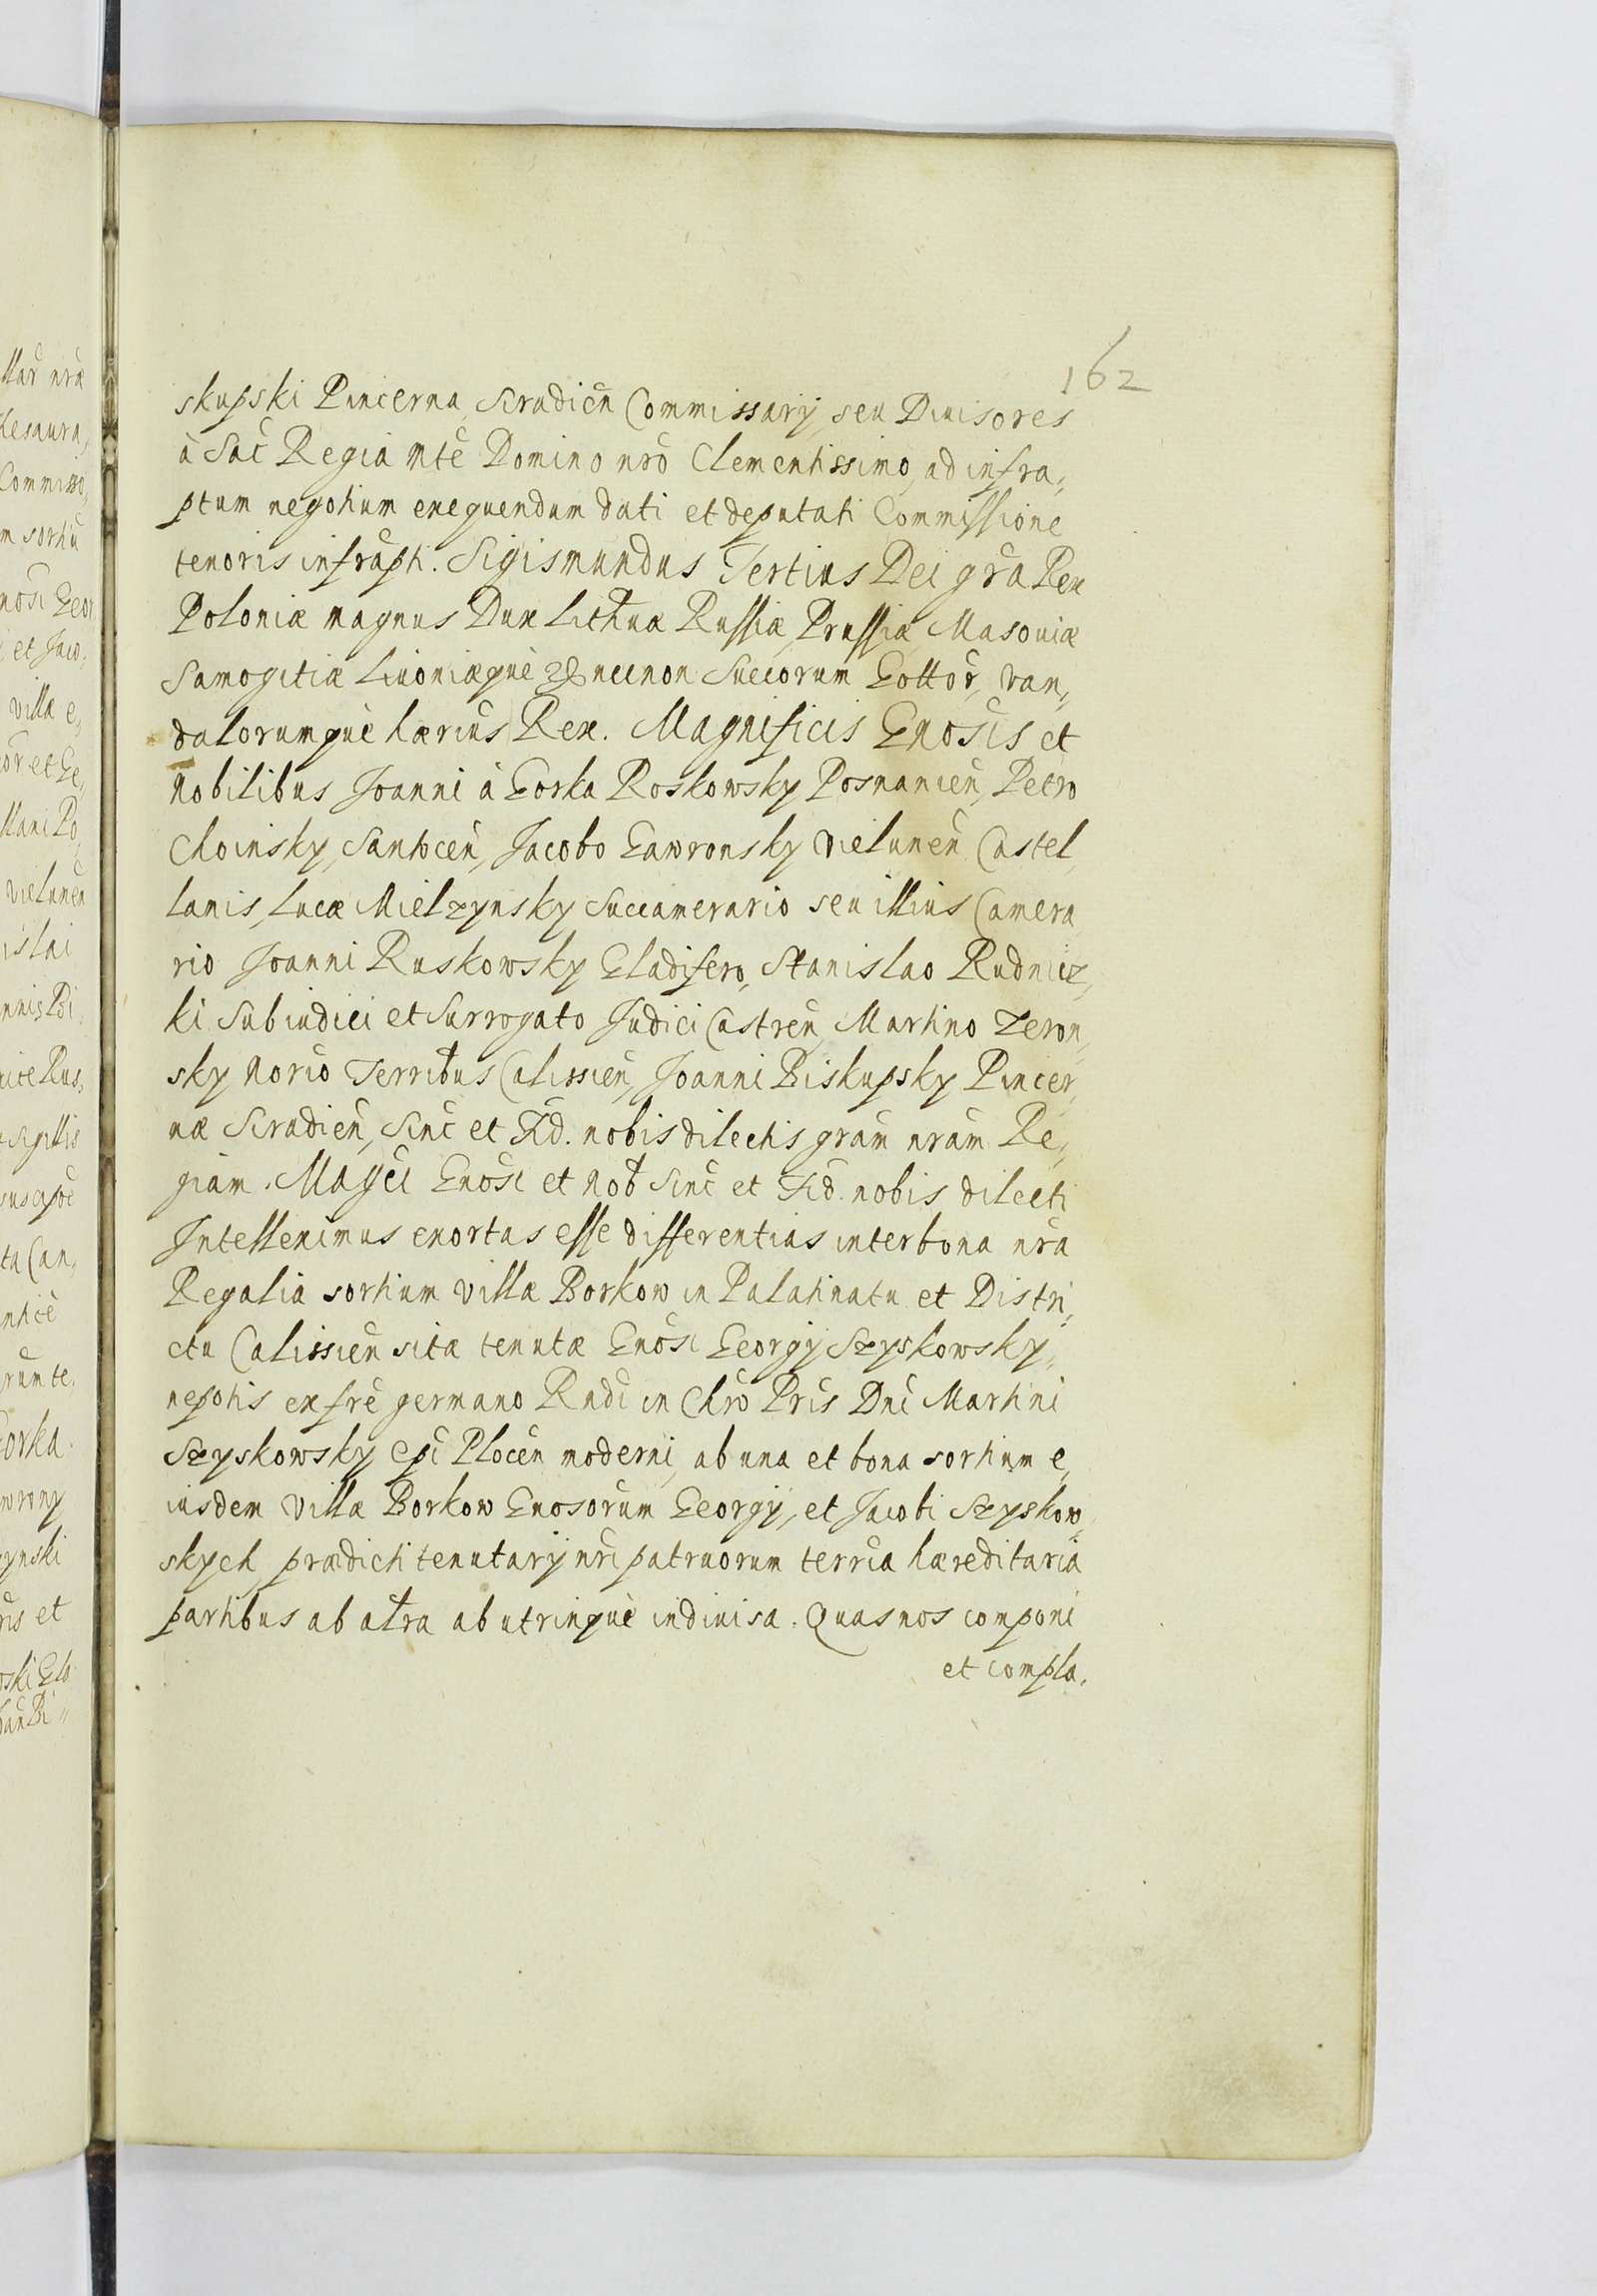 162
skupski Pincerna Siradien̄ Commissarij seu Diuisores
à Sac̄ Regia Mtē Domino nrō Clementissimo, ad infra,
ptum negotium exequendum dati et deputati Commissione
tenoris infrapti. Sigismundus Tertius Dei grā Rex
Poloniæ magnus Dux Lithuæ Russiæ Prussiæ Masouiæ
Samogitiæ Liuoniæquè necnon Suecorum Gottor̄, van,
dalorumquè hærius Rex. Magnificis Gnosis et
Nobilibus Joanni à Gorka Roskowsky Posnanien̄, Petro
Choinsky, Santocen̄, Jacobo Gawronsky Vielunen̄ Castel,
lanis, Lucæ Mielzynsky Succamerario seu illius Camera,
rio Joanni Ruskowsky Gladifero, Stanislao Rudnicz,
ki Subiudici et Surrogato Judici Castren̄, Martino Zeron,
sky Norio Terribus Calissien̄, Joanni Biskupsky Pincer,
næ Siradien̄, Sinc̄ et Fid. nobis dilectis grām nrām Re,
giam. Magci Gnosi et Nob̄ Sinc̄ et Fid. nobis dilecti
Intelleximus exortas esse differentias inter bona nrā
Regalia sortium villæ Borkow in Palatinatu et Distri,
ctu Calissien̄ sitæ tenutæ Gnosi Georgij Szyskowsky,
nepotis ex frē germano Rndi in Chrō Pris Dni Martini
Szyskowsky Epi Plocen̄ moderni, ab una et bona sortium e,
iusdem villæ Borkow Gnosorum Georgij, et Jacobi Szyskow,
skych prædicti tenutarij nri patruorum terria hæreditaria
partibus ab altra ab utrinquè indiuisa. Quas nos componi
et compla,